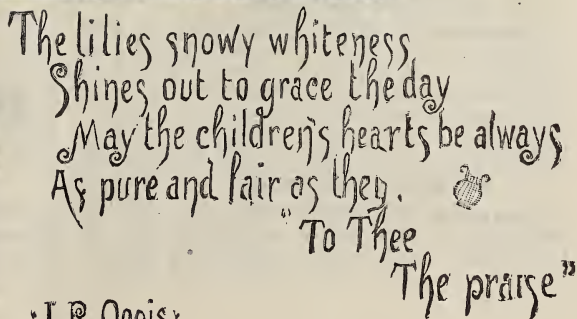 The lilies snowy whiteness
Shines out to grace the day
May the children's hearts be always
As pure and fair as they.
"To Thee
The praise"